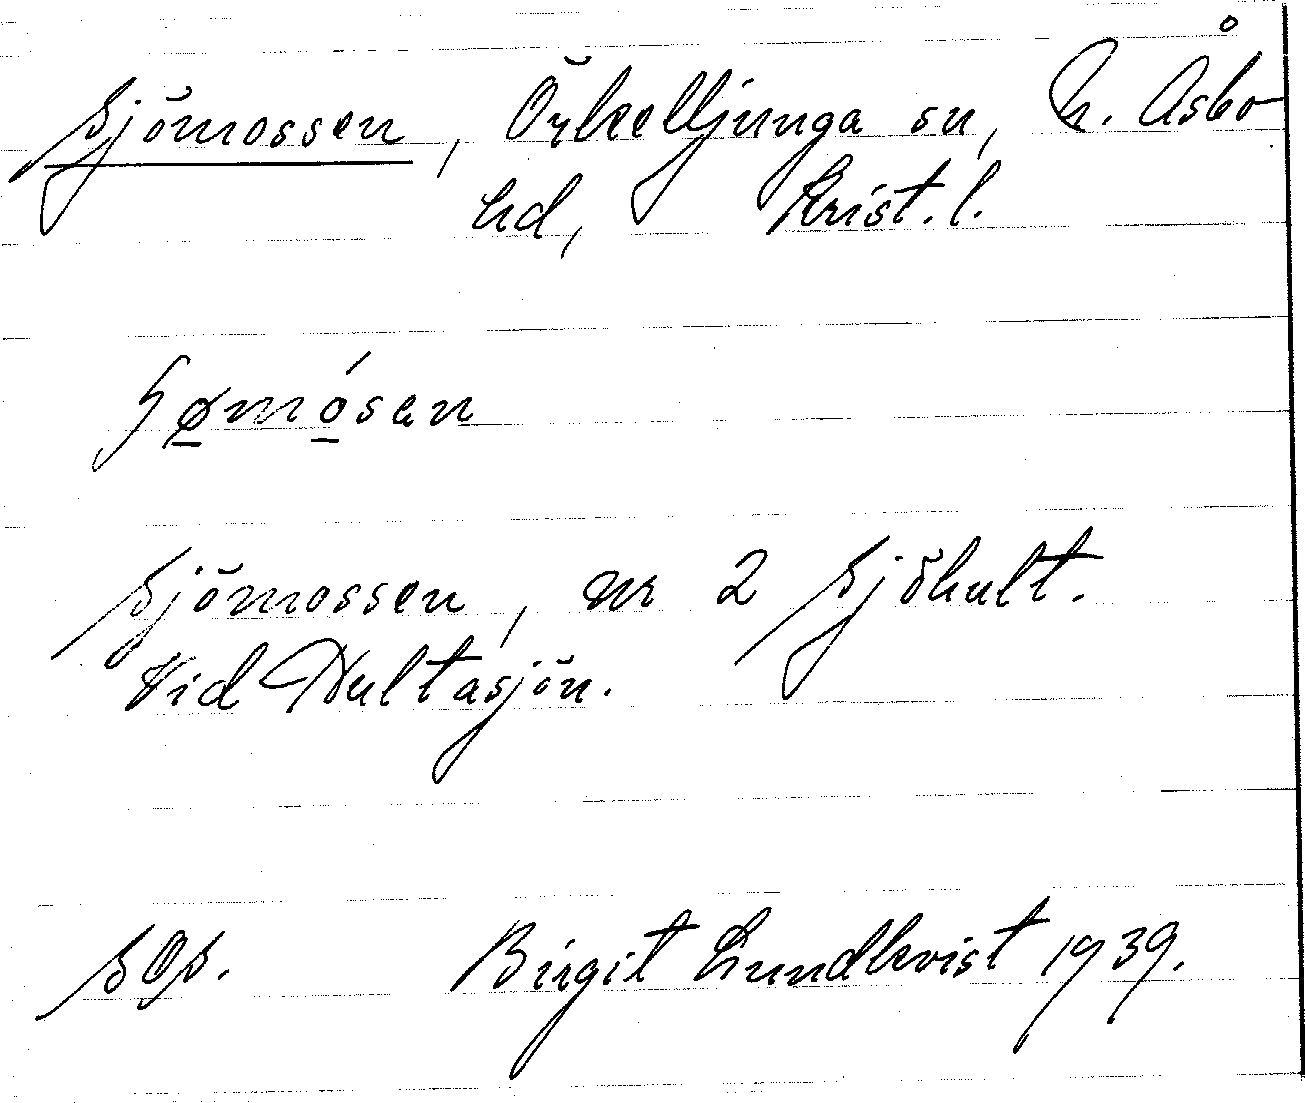 Sjömossen, Örkelljunga sn, N. Åsbo
hd, Krist. l.
Sjömossen, nr 2 Sjöhult.
Vid Hultasjön.
SOs. Birgit Lundkvist 1939.